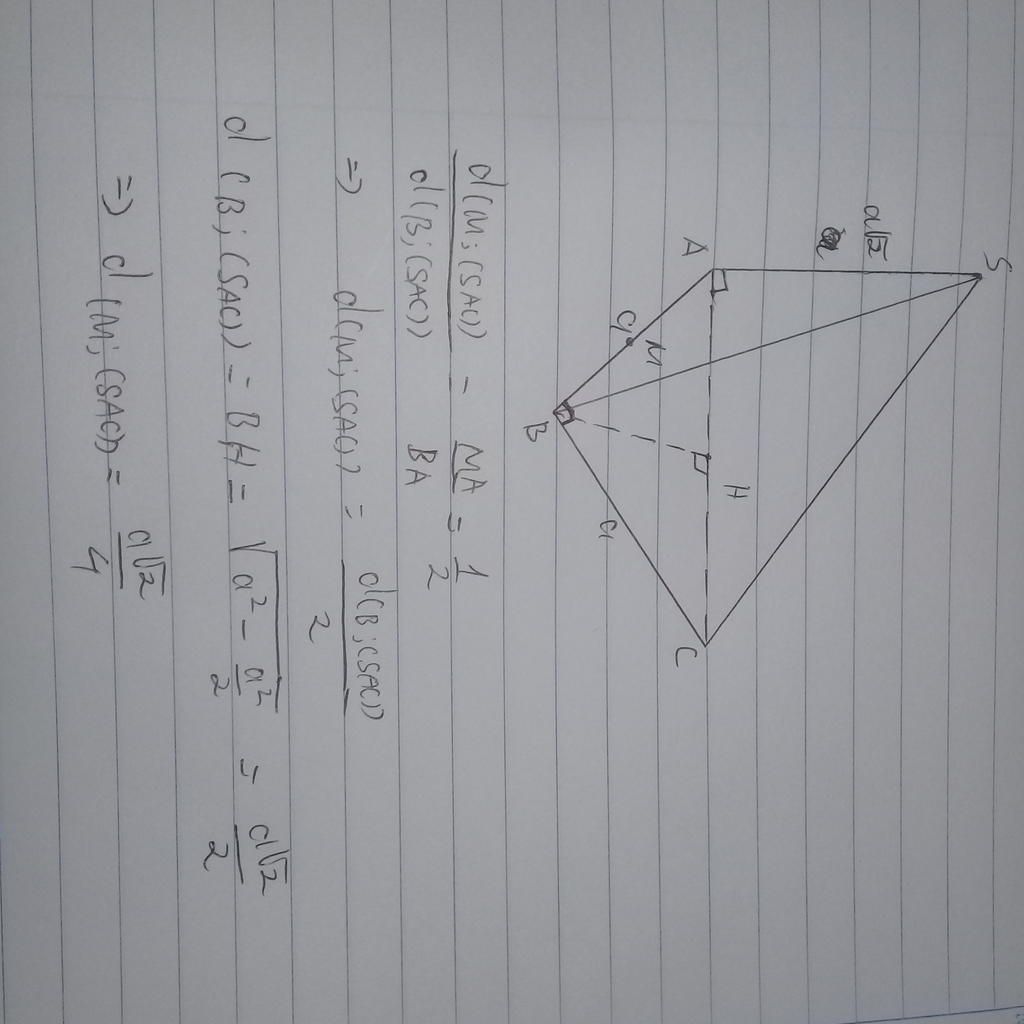 S
a√2
A
a
M
H
B
a
C
d(M;(SAC)) / d(B;(SAC)) = MA / BA = 1 / 2
=> d(M;(SAC)) = d(B;(SAC)) / 2
d(B;(SAC)) = BH = √(a² - a²/2) = a√2 / 2
=> d(M;(SAC)) = a√2 / 4